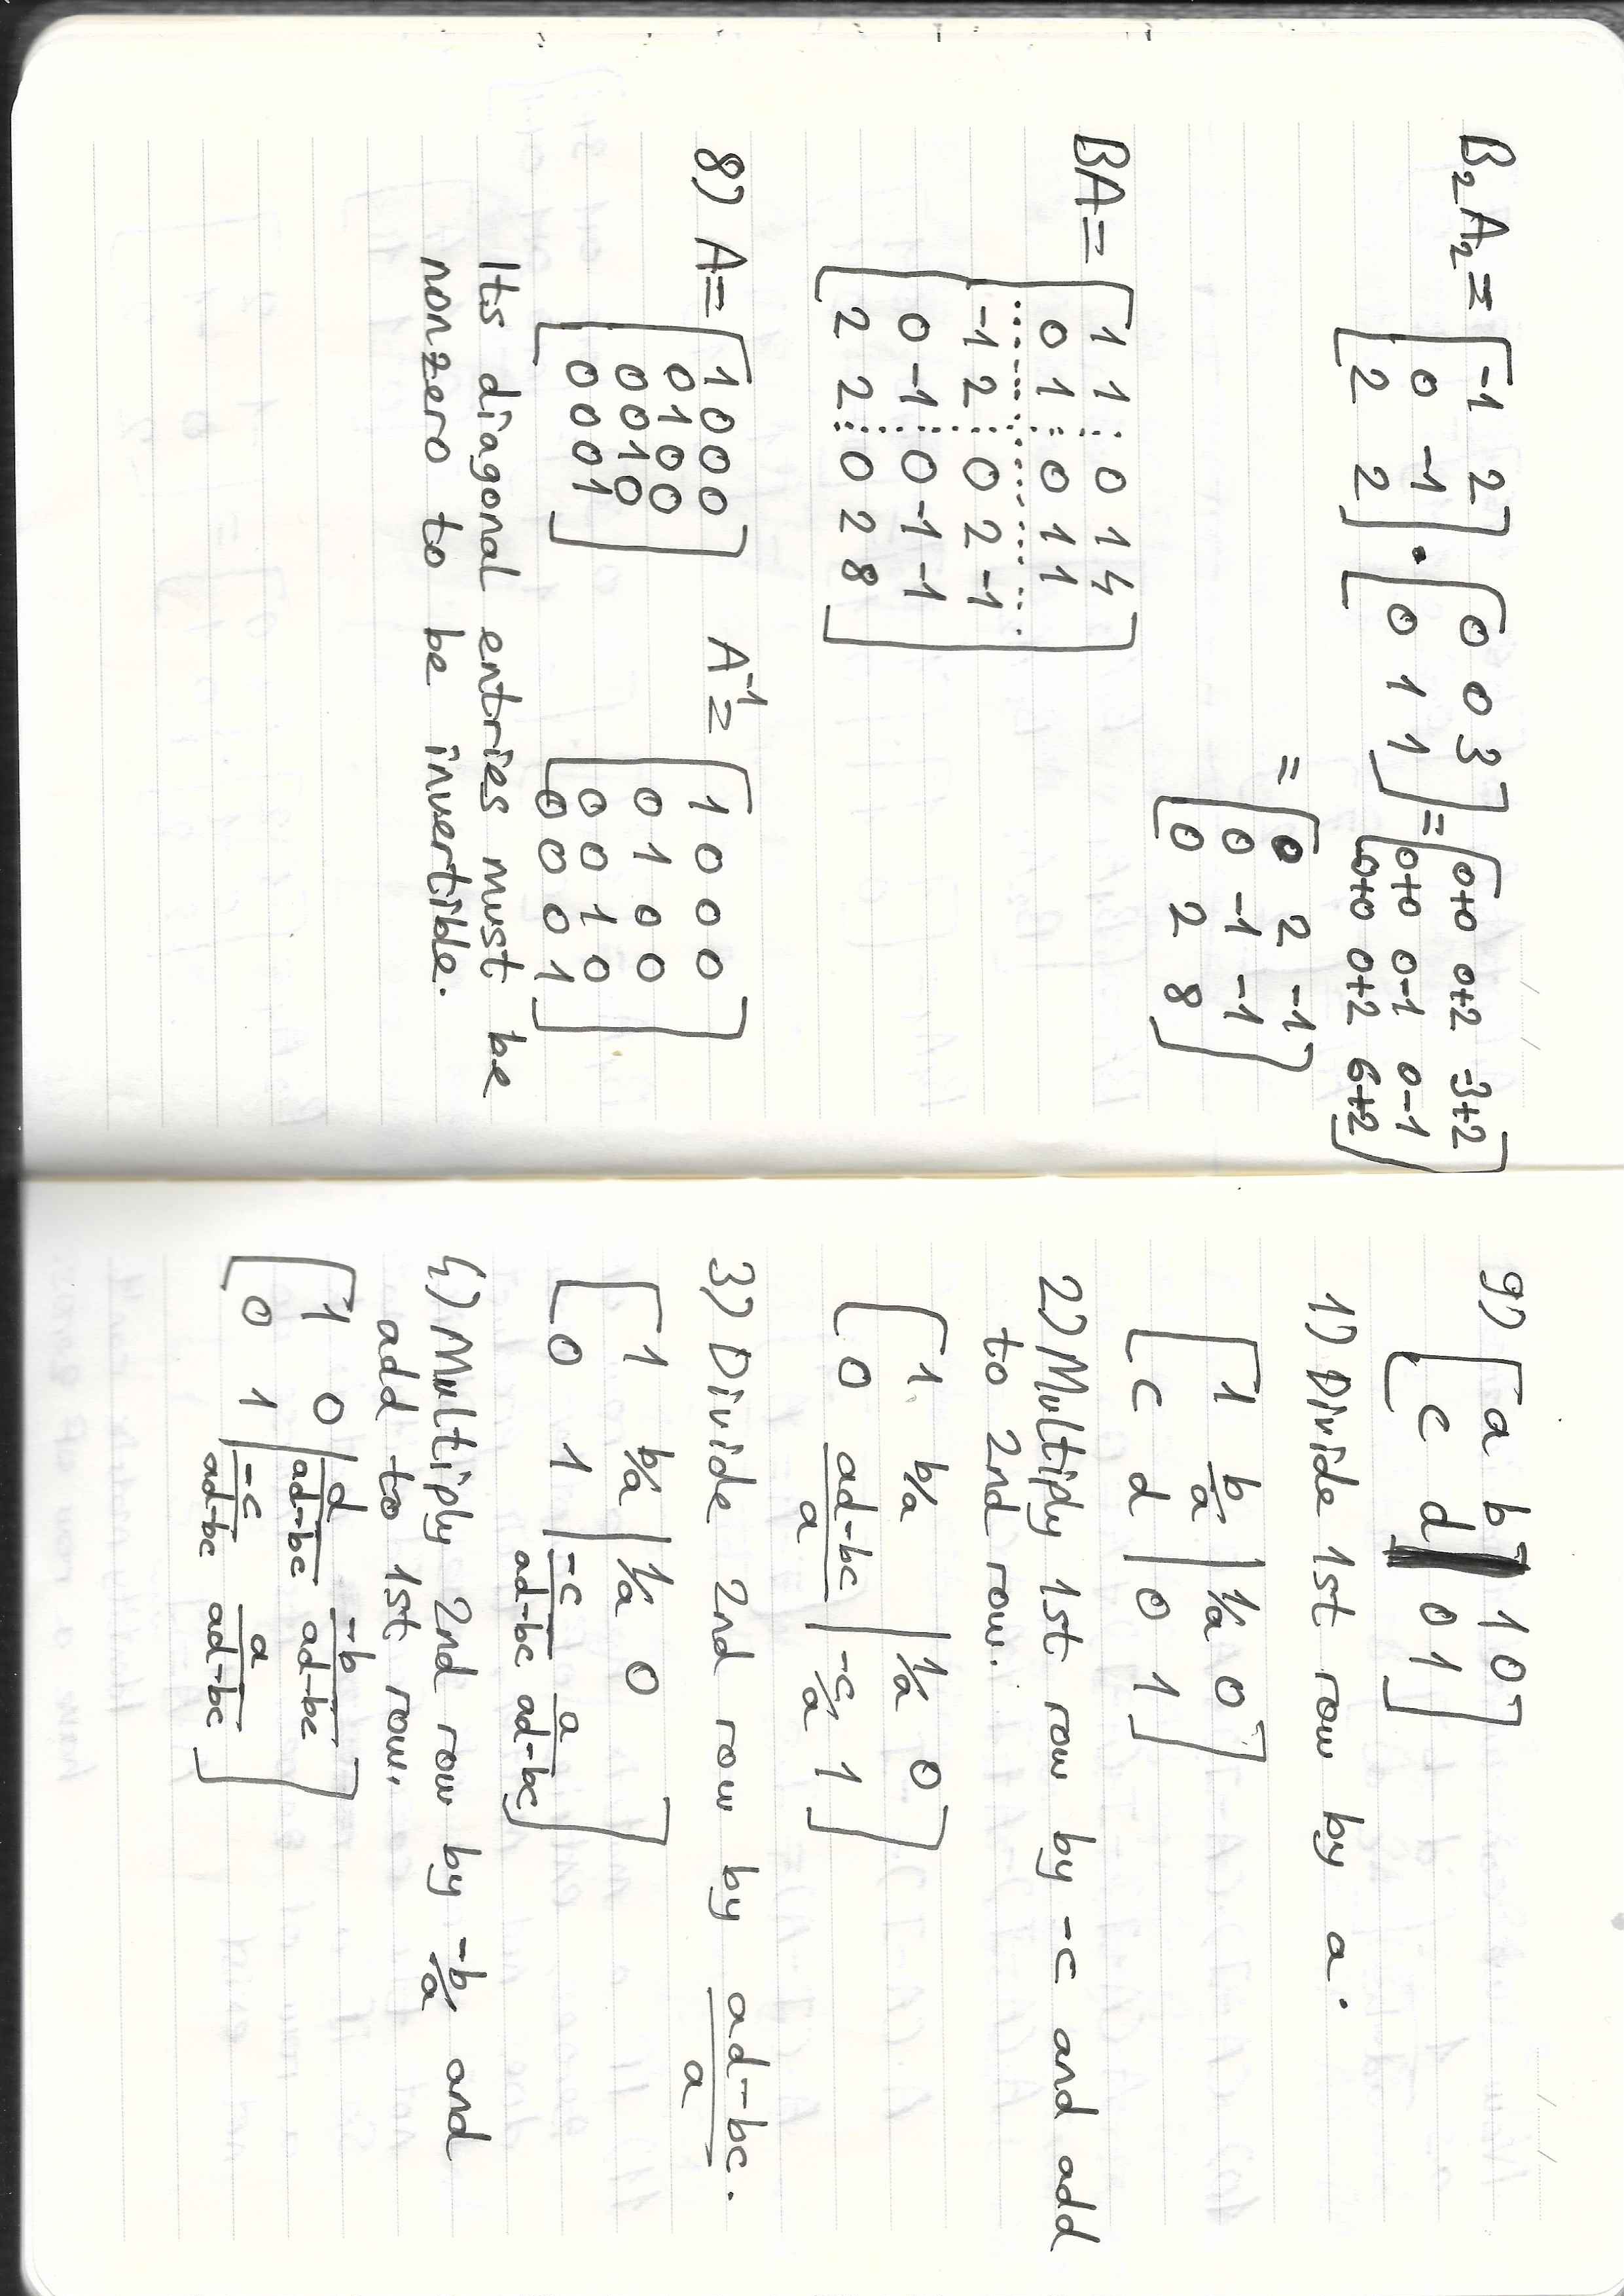 B₂A₂ = [-1 2; 0 -1; 2 2] · [0 0 3; 0 1 1] = [0+0 0+2 -3+2; 0+0 0-1 0-1; 0+0 0+2 6+2]
= [0 2 -1; 0 -1 -1; 0 2 8]
BA = [1 1 ⋮ 0 1 4
0 1 ⋮ 0 1 1
-1 2 ⋮ 0 2 -1
0 -1 ⋮ 0 -1 -1
2 2 ⋮ 0 2 8]
8) A = [1 0 0 0; 0 1 0 0; 0 0 1 0; 0 0 0 1] A⁻¹ = [1 0 0 0; 0 1 0 0; 0 0 1 0; 0 0 0 1]
Its diagonal entries must be
nonzero to be invertible.
9) [a b | 1 0
c d | 0 1]
1) Divide 1st row by a.
[1 b/a | 1/a 0
c d | 0 1]
2) Multiply 1st row by -c and add
to 2nd row.
[1 b/a | 1/a 0
0 (ad-bc)/a | -c/a 1]
3) Divide 2nd row by (ad-bc)/a.
[1 b/a | 1/a 0
0 1 | -c/(ad-bc) a/(ad-bc)]
4) Multiply 2nd row by -b/a and
add to 1st row.
[1 0 | d/(ad-bc) -b/(ad-bc)
0 1 | -c/(ad-bc) a/(ad-bc)]